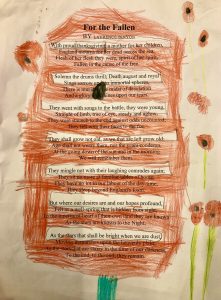 For the Fallen
BY LAURENCE BINYON
With proud thanksgiving, a mother for her children,
England mourns for her dead across the sea.
Flesh of her flesh they were, spirit of her spirit,
Fallen in the cause of the free.
Solemn the drums thrill; Death august and royal
Sings sorrow up into immortal spheres,
There is music in the midst of desolation
And a glory that shines upon our tears.
They went with songs to the battle, they were young,
Straight of limb, true of eye, steady and aglow.
They were staunch to the end against odds uncounted;
They fell with their faces to the foe.
They shall grow not old, as we that are left grow old:
Age shall not weary them, nor the years condemn.
At the going down of the sun and in the morning
We will remember them.
They mingle not with their laughing comrades again;
They sit no more at familiar tables of home;
They have no lot in our labour of the day-time;
They sleep beyond England's foam.
But where our desires are and our hopes profound,
Felt as a well-spring that is hidden from sight,
To the innermost heart of their own land they are known
As the stars are known to the Night;
As the stars that shall be bright when we are dust,
Moving in marches upon the heavenly plain;
As the stars that are starry in the time of our darkness,
To the end, to the end, they remain.